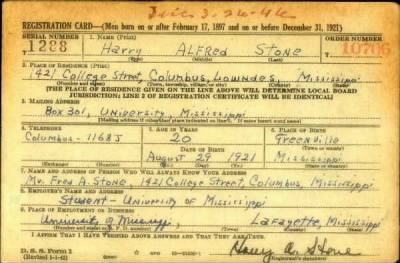 REGISTRATION CARD—(Men born on or after February 17, 1897 and on or before December 31, 1921)
SERIAL NUMBER 1. NAME (Print) ORDER NUMBER
1288 Harry ALFRED Stone 10706
2. PLACE OF RESIDENCE (Print)
1421 College Street, Columbus, Lowndes, Mississippi
(Number and street) (Town, township, village, or city) (County) (State)
[THE PLACE OF RESIDENCE GIVEN ON THE LINE ABOVE WILL DETERMINE LOCAL BOARD
JURISDICTION; LINE 2 OF REGISTRATION CERTIFICATE WILL BE IDENTICAL]
3. MAILING ADDRESS
Box 301, University, Mississippi
[Mailing address if other than place indicated on line 2. If same insert word same]
4. TELEPHONE 5. AGE IN YEARS 6. PLACE OF BIRTH
Columbus - 1168J 20 Greenville
DATE OF BIRTH (Town or county)
August 29 1921 Mississippi
(Exchange) (Number) (Mo.) (Day) (Yr.) (State or country)
7. NAME AND ADDRESS OF PERSON WHO WILL ALWAYS KNOW YOUR ADDRESS
Mr. Fred A. Stone, 1421 College Street, Columbus, Mississippi
8. EMPLOYER'S NAME AND ADDRESS
Student - University of Mississippi
9. PLACE OF EMPLOYMENT OR BUSINESS
University of Mississippi Lafayette, Mississippi
(County) (State)
I AFFIRM THAT I HAVE VERIFIED ABOVE ANSWERS AND THAT THEY ARE TRUE.
D. S. S. Form 1 Harry A. Stone
(Revised 1-1-42) (Registrant's signature)